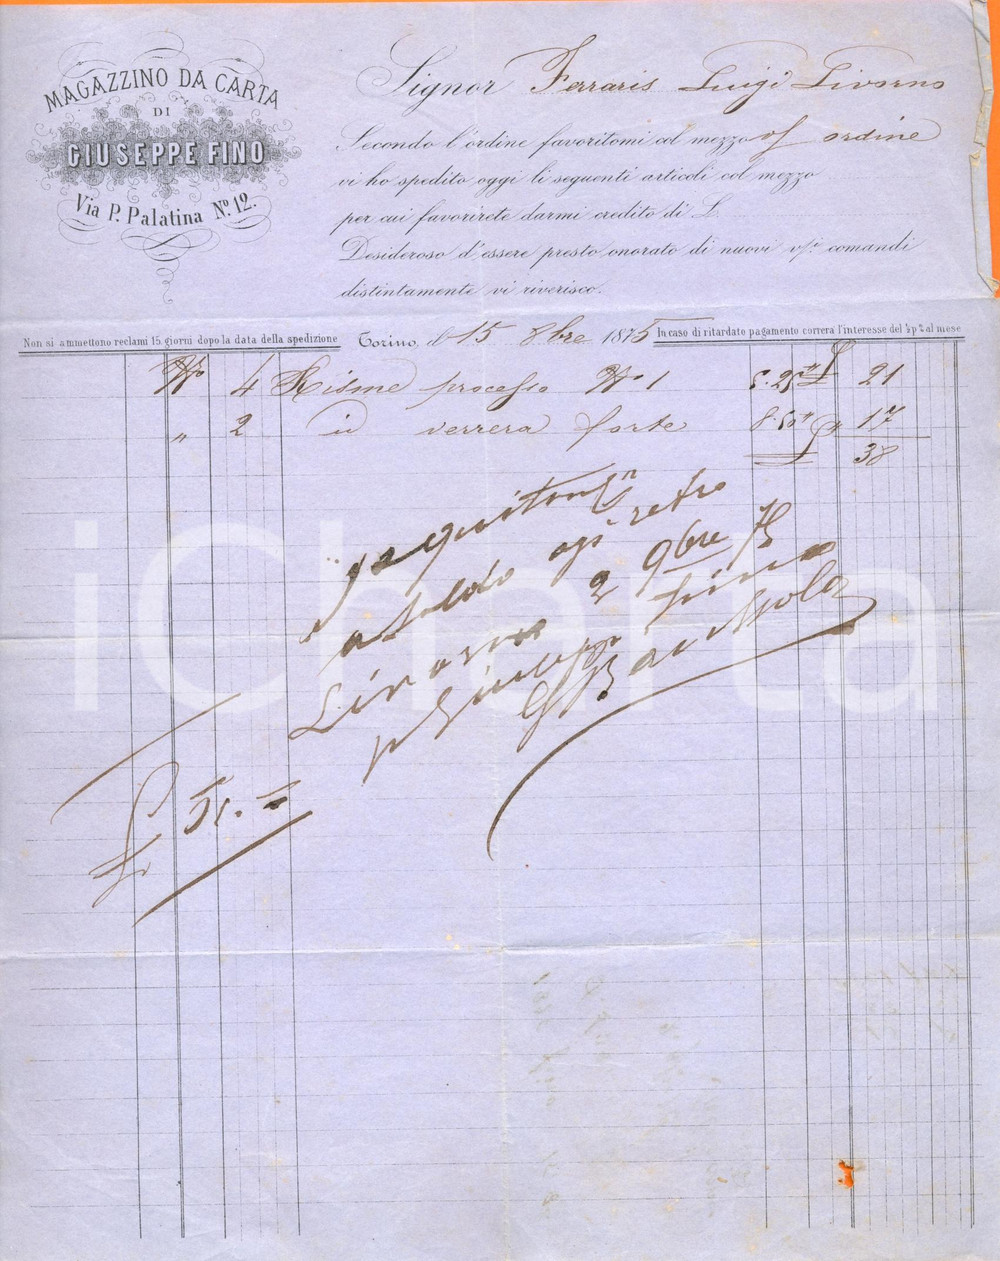 MAGAZZINO DA CARTA
DI
GIUSEPPE FINO
Via P. Palatina N.º 12.
Signor Ferraris Luigi Livorno
Secondo l'ordine favoritomi col mezzo v/ ordine
vi ho spedito oggi li seguenti articoli col mezzo
per cui favorirete darmi credito di L.
Desideroso d'essere presto onorato di nuovi v/i comandi
distintamente vi riverisco.
Non si ammettono reclami 15 giorni dopo la data della spedizione
Torino, il 15 8bre 1875
In caso di ritardato pagamento correrà l'interesse del ½ p% al mese
Nº 4 Risme processo Nº 1 5.25 £ 21
" 2 id verrera forte 8.50 £ 17
38
a saldo retro
Livorno 2 9bre 75
p Giuseppe Fino
£ 51.=
iCharta